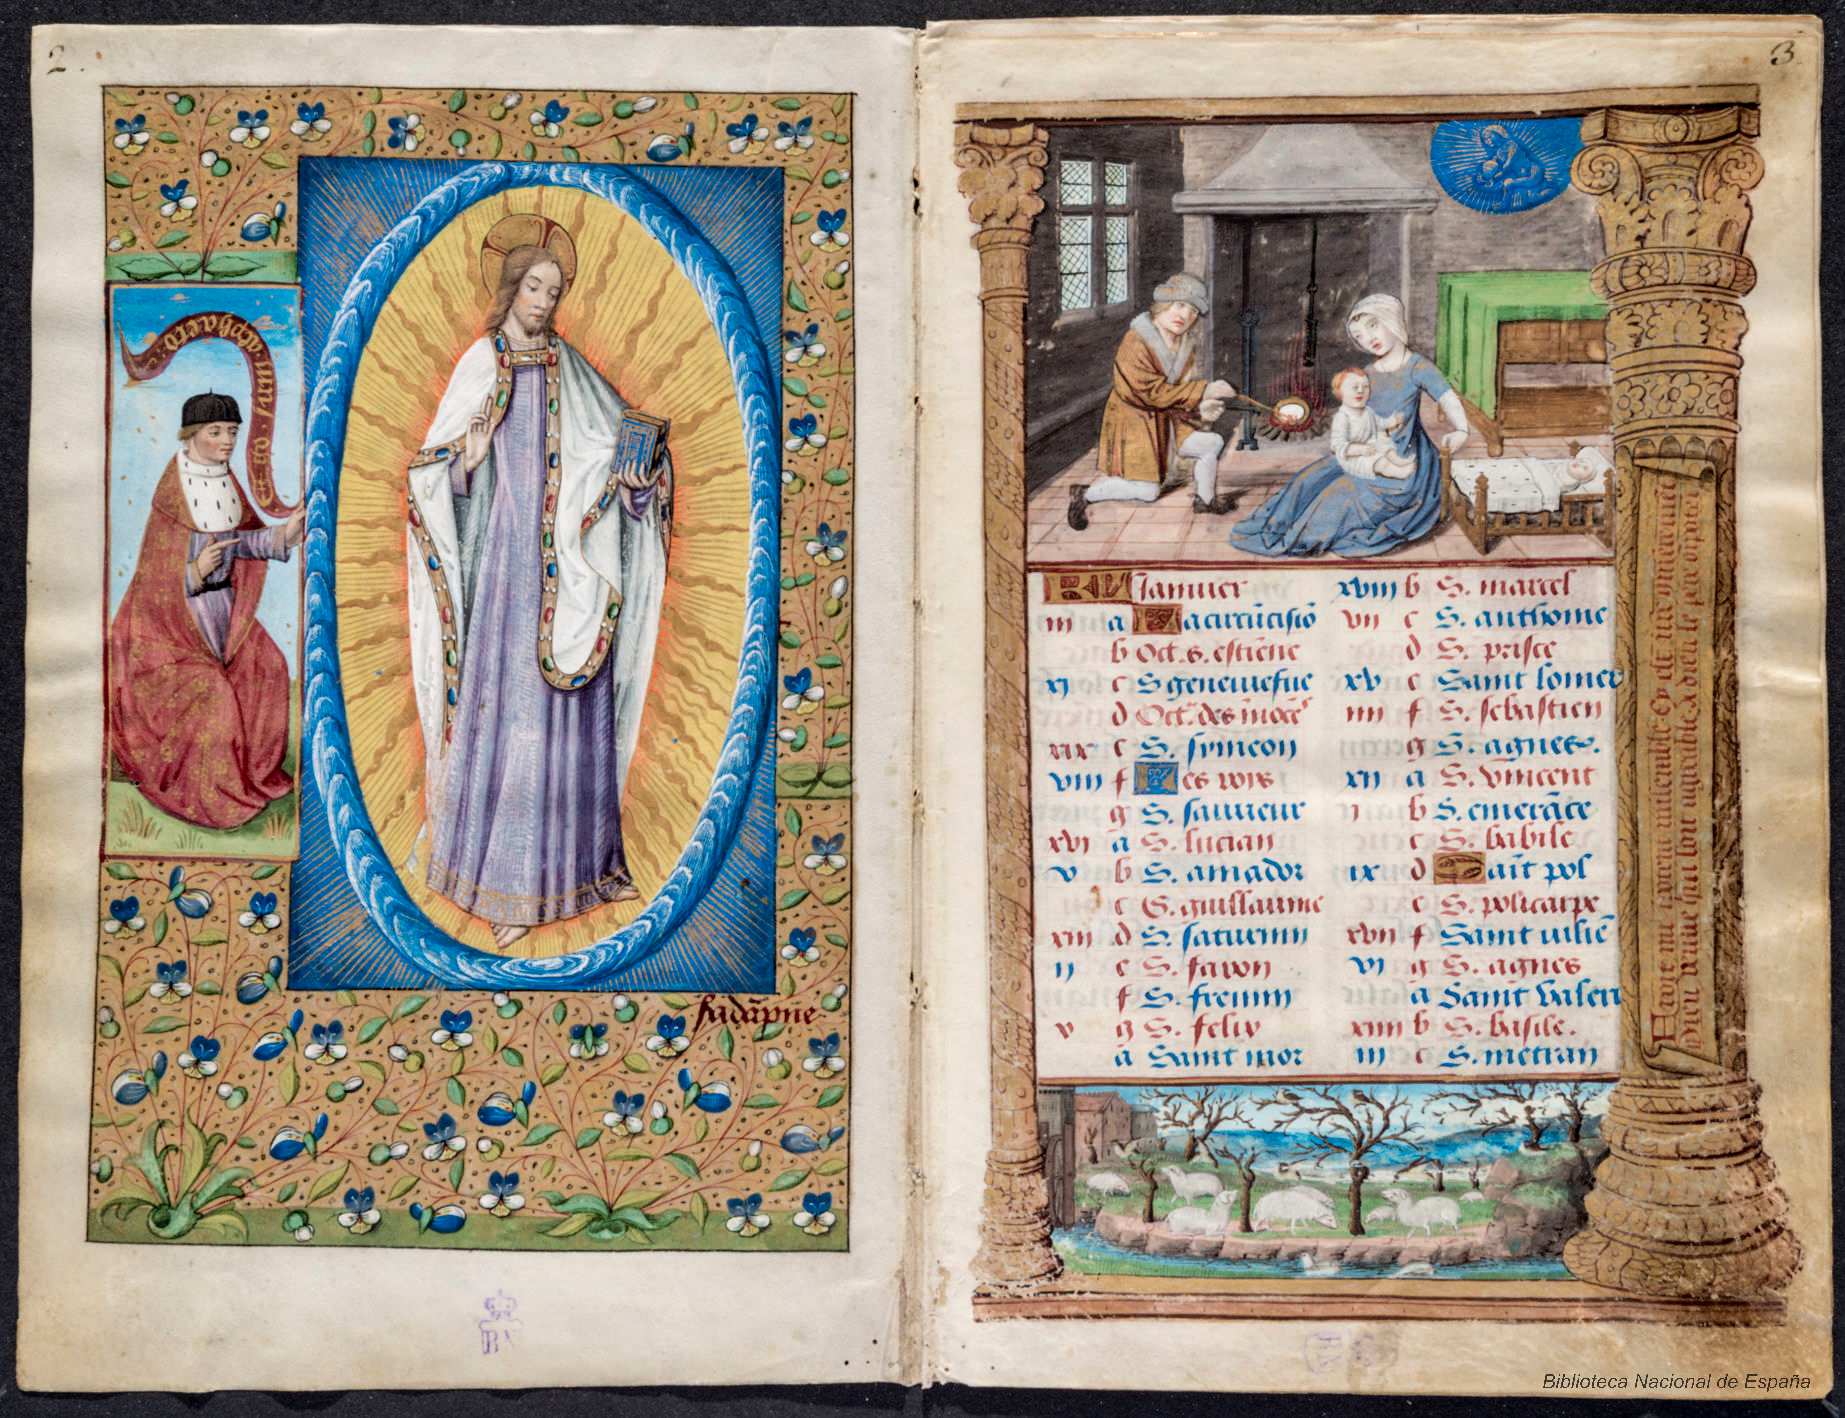 2.
fada͞pne
3
KL Januier
iii a La circu͞cisio͞
b Oct. s. estiene
xj c S geneuiefue
d Oct. des i͞noce͞
xix e S. symeon
viii f Les rois
g S. sauueur
xvi a S. lucian
v b S. amador
c S. guillaume
xiii d S. saturnin
ij e S. fauon
f S. fremin
v g S. felix
a Saint mor
xviii b S. marcel
vii c S. anthoine
d S. prisce
xv e Saint lomer
iiii f S. sebastien
g S. agnes.
xii a S. vincent
j b S. emera͞ce
c S. babile
ix d Sai͞t pol
e S. policarpe
xvii f Saint iulie͞
vi g S. agnes
a Saint valeri
xiiii b S. basile.
iii c S. metran
Biblioteca Nacional de España